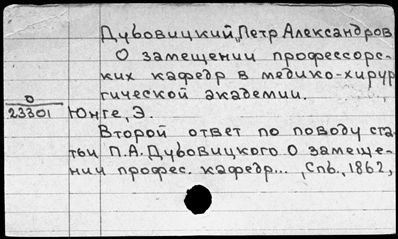 Дубовицкий, Петр Александров
О замещении профессорс-
ких кафедр в медико-хирур
гической академии.
О
23301
Юнге, Э.
Второй ответ по поводу ста-
тьи П.А.Дубовицкого О замеще-
нии профес. кафедр..., Спб., 1862,